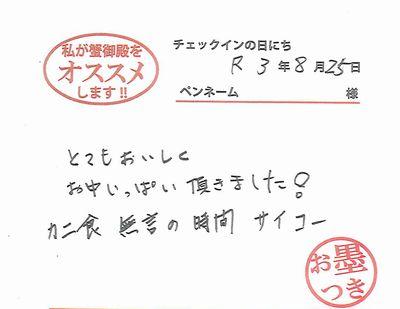 私が蟹御殿を
オススメ
します!!
チェックインの日にち
R 3年8月25日
ペンネーム 様
とてもおいしく
お中いっぱい頂きました!
カニ食 無言の時間 サイコー
お墨
つき